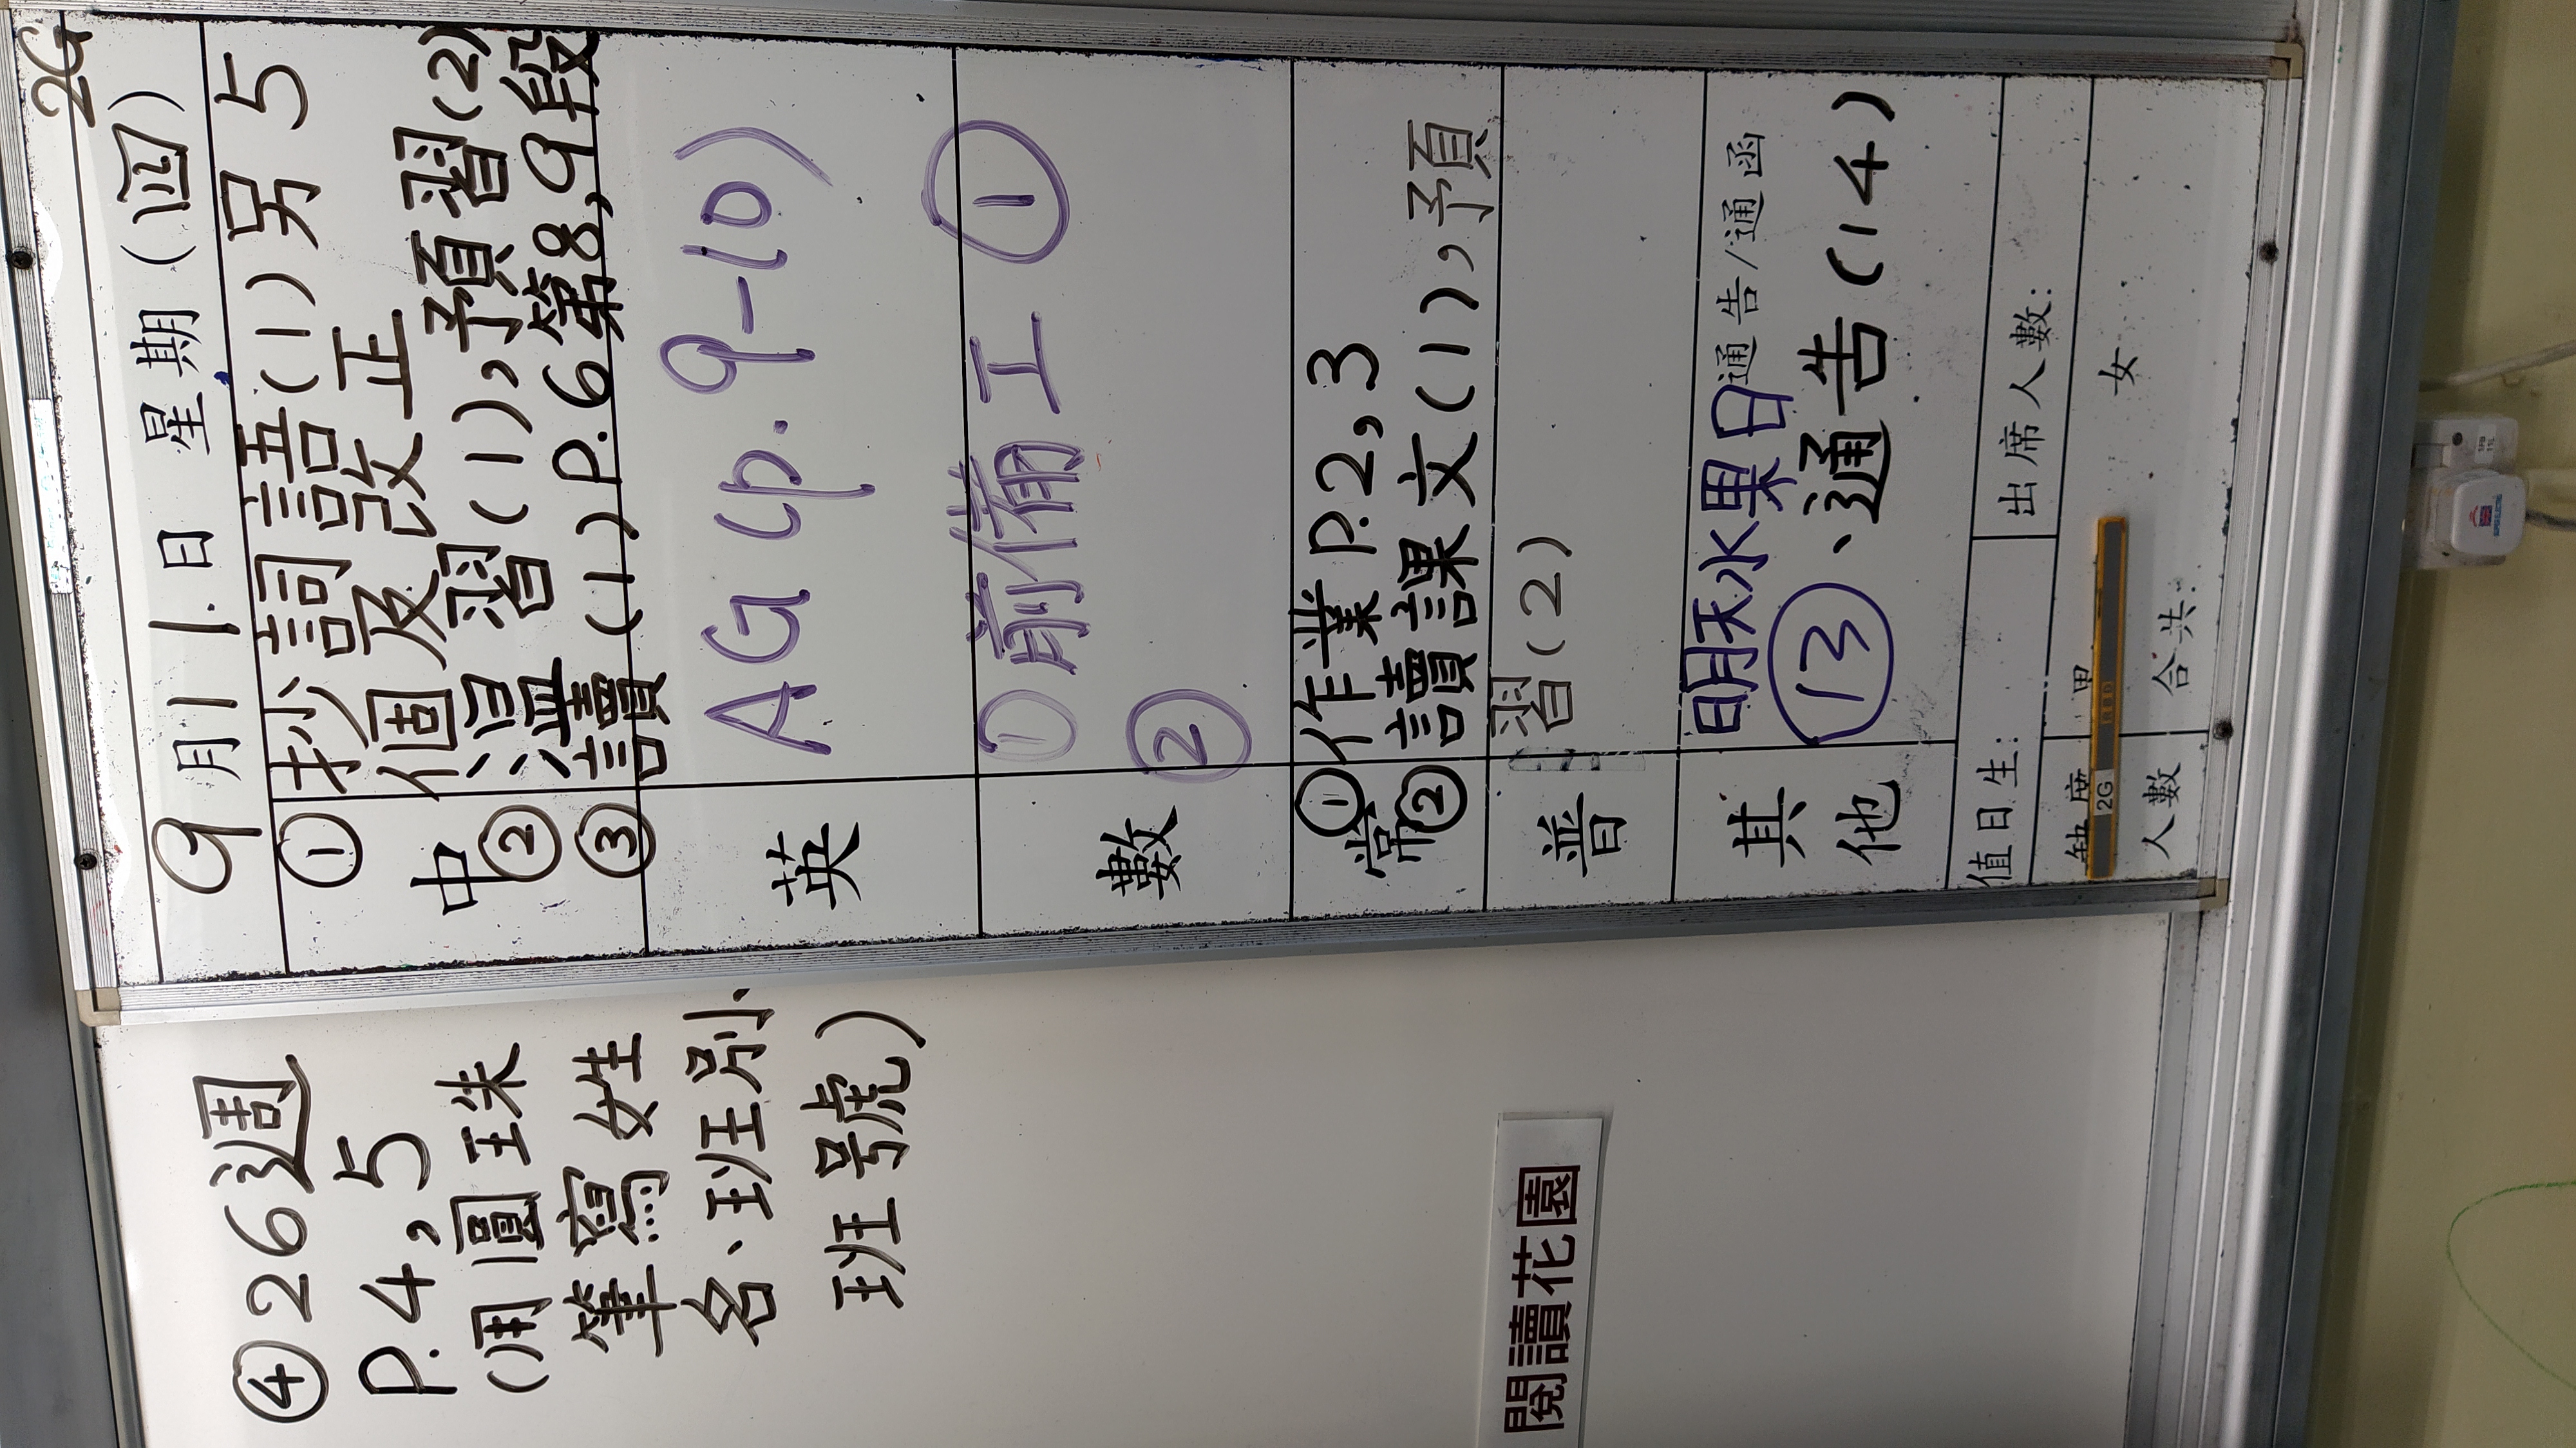 2G
9月11日 星期(四)
中
①抄詞語(1)另5
個及改正
②溫習(1),預習(2)
③讀(1)P.6第8,9段
英
AG (p. 9-10)
數
①前備工①
②
常
①作業P.2,3
②讀課文(1),預
習(2)
普
其他
明天水果日
通告/通函
⑬、通告(14)
值日生:
出席人數:
缺席
人數
男
女
合共:
2G
④26週
P.4,5
(用圓珠
筆寫姓
名、班別、
班號)
閱讀花園